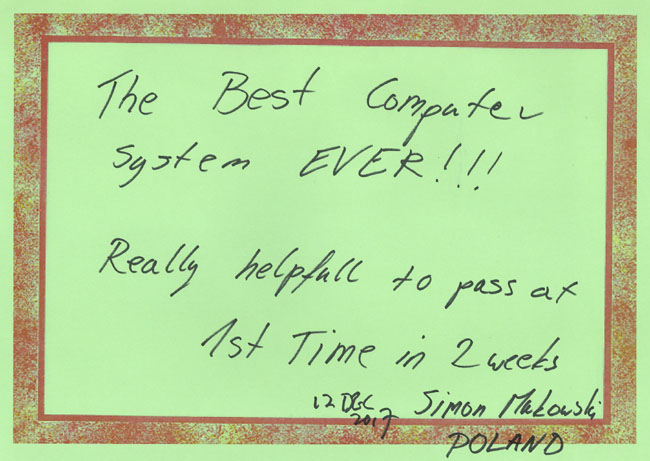 The Best Computer
system EVER!!!
Really helpfull to pass at
1st Time in 2 weeks
12 DEC 2017 Simon Makowski
POLAND